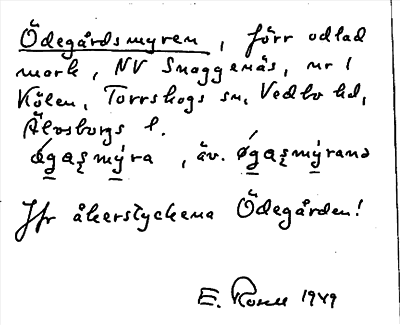 Ödegårdsmyren, förr odlad
mark, NV Snaggenäs, nr 1
Kölen, Torrskogs sn, Vedbo hd,
Älvsborgs l.
øgaꞩmýra, äv. øgaꞩmýrand
Jfr åkerstyckena Ödegården!
E. 1949